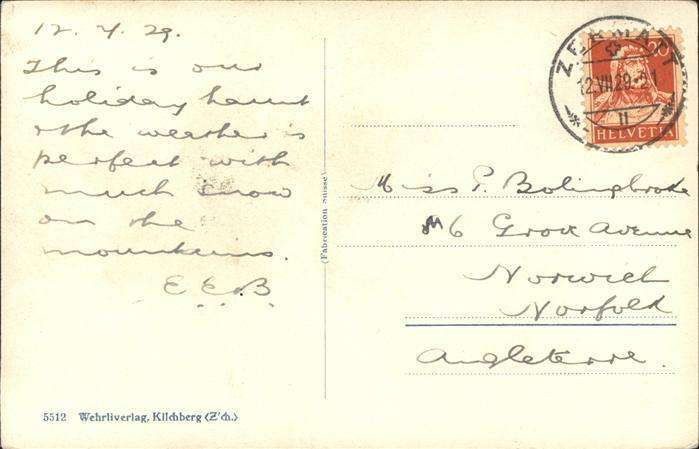 12.7.29.
This is our
holiday haunt
& the weather is
perfect with
much snow
on the
mountains.
E.E.B
ZERMATT
12.VII.29-21
20
HELVETIA
(Fabrication Suisse)
Miss P. Bolingbroke
6 Grove Avenue
Norwich
Norfolk
Angleterre.
5512 Wehrliverlag, Kilchberg (Z'ch.)